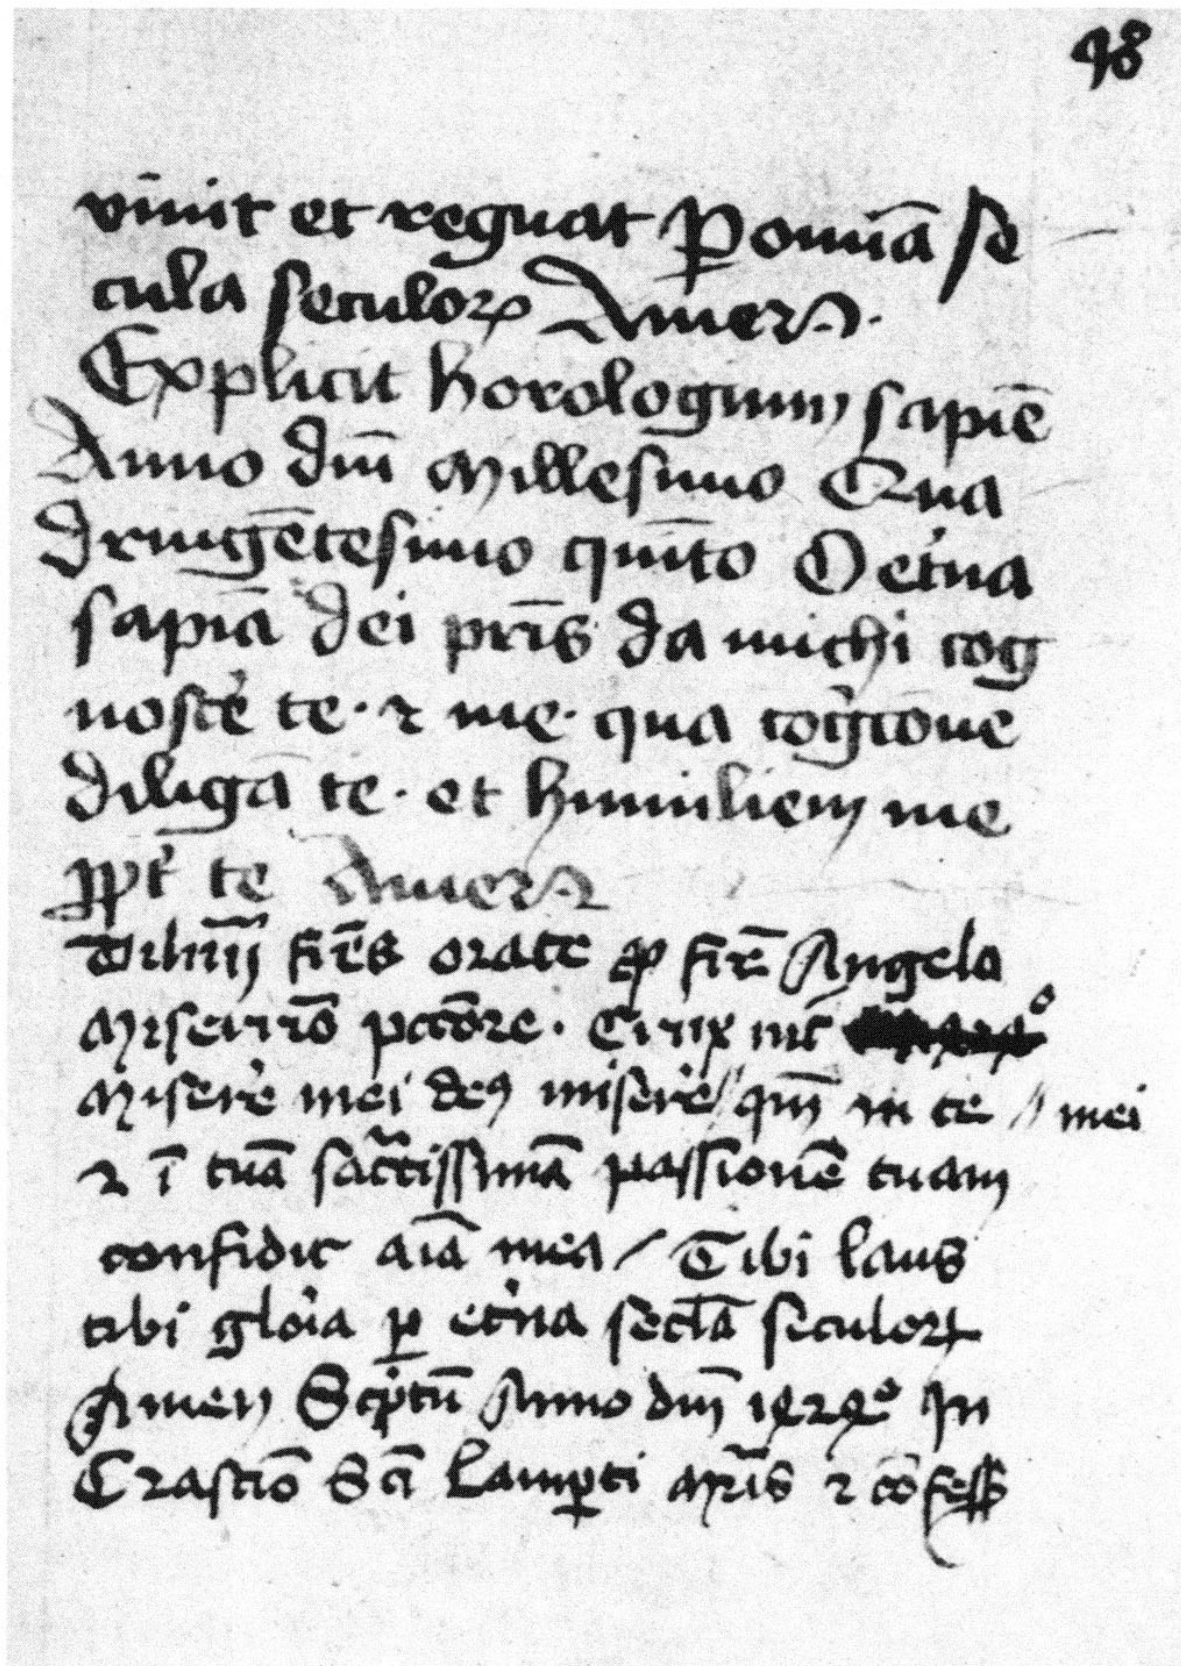 98
viuit et regnat ꝑ omīa se
cula seculoꝝ Amen.
Explicit horologium sapiē
Anno dn̄i Millesimo Qua
dringētesimo quīto O et̓na
sapīa dei pr̄is da michi cog
nosce̓ te · ⁊ me · qua cog̓cōne
diligā te · et humiliem me
ꝓpt̓ te Amen
fr̄es orate ꝓ fr̄e Angelo
Miserrīo pctōre ·
Misere̓ mei deꝰ misere̓ // qm̄ in te // mei
⁊ ī tuā sāctissimā passionē tuam
confidit aīa mea / Tibi laus
tibi glo̓ia ꝑ et̓na secl̄a seculoꝝ
Amen Scp̓tū Anno dn̄i 1424° In
Crastīo Scī Lamꝑti mr̄is ⁊ cōfess